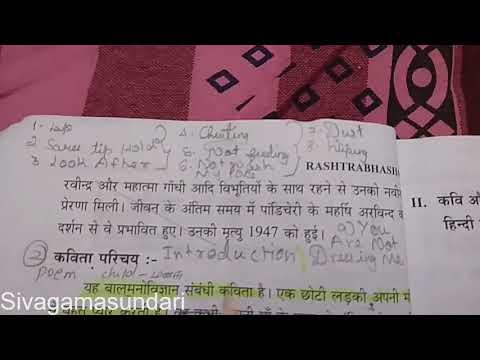 1- Lap
2 Saree tip Hold
3 Look After
4. Cheating
5. Not feeding
6. Not wash my face
7. Dust
8. Wiping
RASHTRABHASHA
रवीन्द्र और महात्मा गाँधी आदि विभूतियों के साथ रहने से उनको नवी
प्रेरणा मिली। जीवन के अंतिम समय में पांडिचेरी के महर्षि अरविन्द
दर्शन से वे प्रभावित हुए। उनकी मृत्यु 1947 को हुई।
9) You Are Not Dressing Me
② कविता परिचय :- Introduction
Poem child
यह बालमनोविज्ञान संबंधी कविता है। एक छोटी लड़की अपनी म
बहुत प्यार करती है।
II. कवि औ
हिन्दी
Sivagamasundari